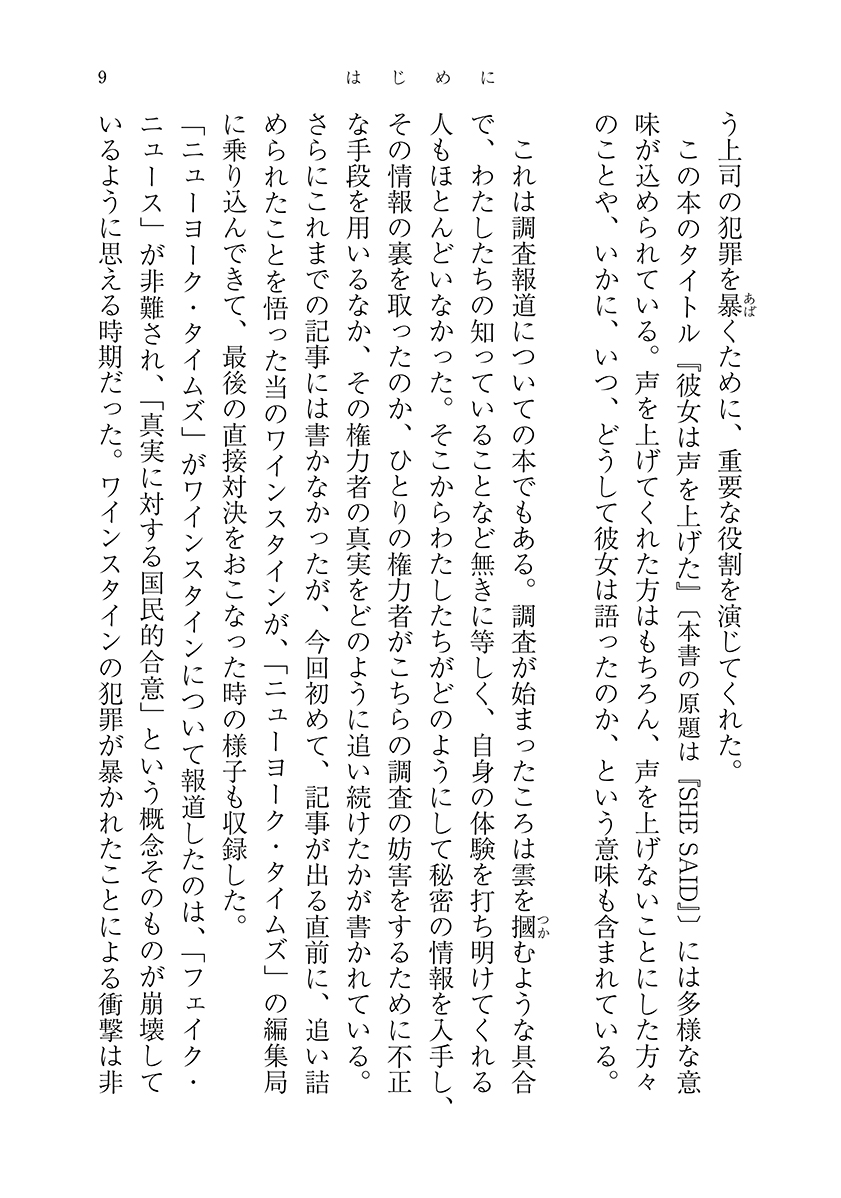 9
はじめに
う上司の犯罪を暴くために、重要な役割を演じてくれた。
あば
この本のタイトル『彼女は声を上げた』〔本書の原題は『SHE SAID』〕には多様な意
味が込められている。声を上げてくれた方はもちろん、声を上げないことにした方々
のことや、いかに、いつ、どうして彼女は語ったのか、という意味も含まれている。
これは調査報道についての本でもある。調査が始まったころは雲を摑むような具合
つか
で、わたしたちの知っていることなど無きに等しく、自身の体験を打ち明けてくれる
人もほとんどいなかった。そこからわたしたちがどのようにして秘密の情報を入手し、
その情報の裏を取ったのか、ひとりの権力者がこちらの調査の妨害をするために不正
な手段を用いるなか、その権力者の真実をどのように追い続けたかが書かれている。
さらにこれまでの記事には書かなかったが、今回初めて、記事が出る直前に、追い詰
められたことを悟った当のワインスタインが、「ニューヨーク・タイムズ」の編集局
に乗り込んできて、最後の直接対決をおこなった時の様子も収録した。
「ニューヨーク・タイムズ」がワインスタインについて報道したのは、「フェイク・
ニュース」が非難され、「真実に対する国民的合意」という概念そのものが崩壊して
いるように思える時期だった。ワインスタインの犯罪が暴かれたことによる衝撃は非